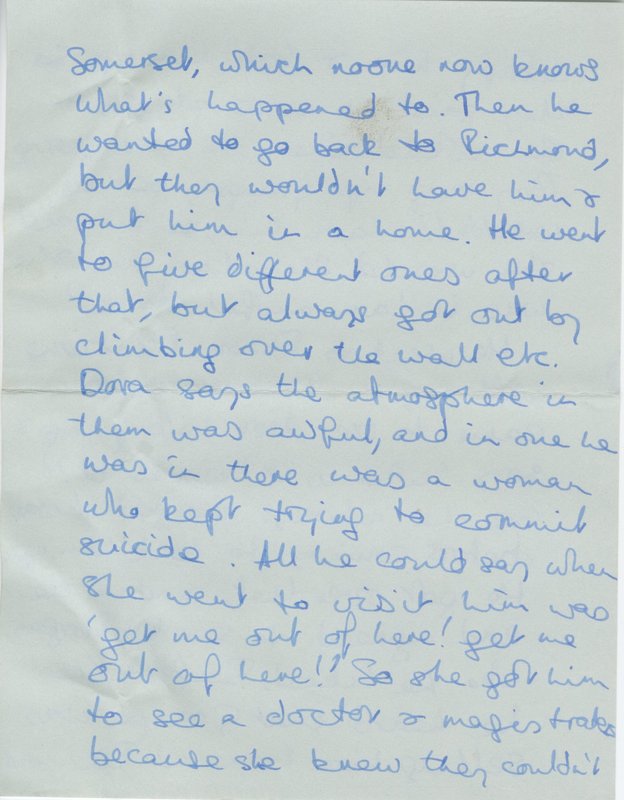 Somerset, which noone now knows
what's happened to. Then he
wanted to go back to Richmond,
but they wouldn't have him &
put him in a home. He went
to five different ones after
that, but always got out by
climbing over the wall etc.
Dora says the atmosphere in
them was awful, and in one he
was in there was a woman
who kept trying to commit
suicide. All he could say when
she went to visit him was
'get me out of here! get me
out of here!' So she got him
to see a doctor & magistrate
because she knew they couldn't